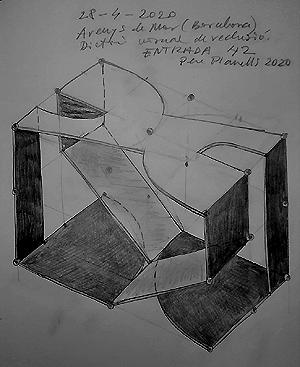 28-4-2020
Arenys de Mar (Barcelona)
Dietari visual de reclusió.
ENTRADA 42
Pere Planells 2020